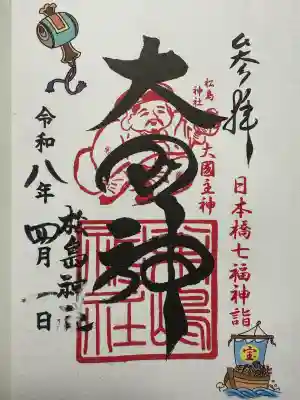 奉拝
日本橋七福神詣
松島神社
大國主神
大国神
松島神社
令和八年
四月一日
松島神社
宝